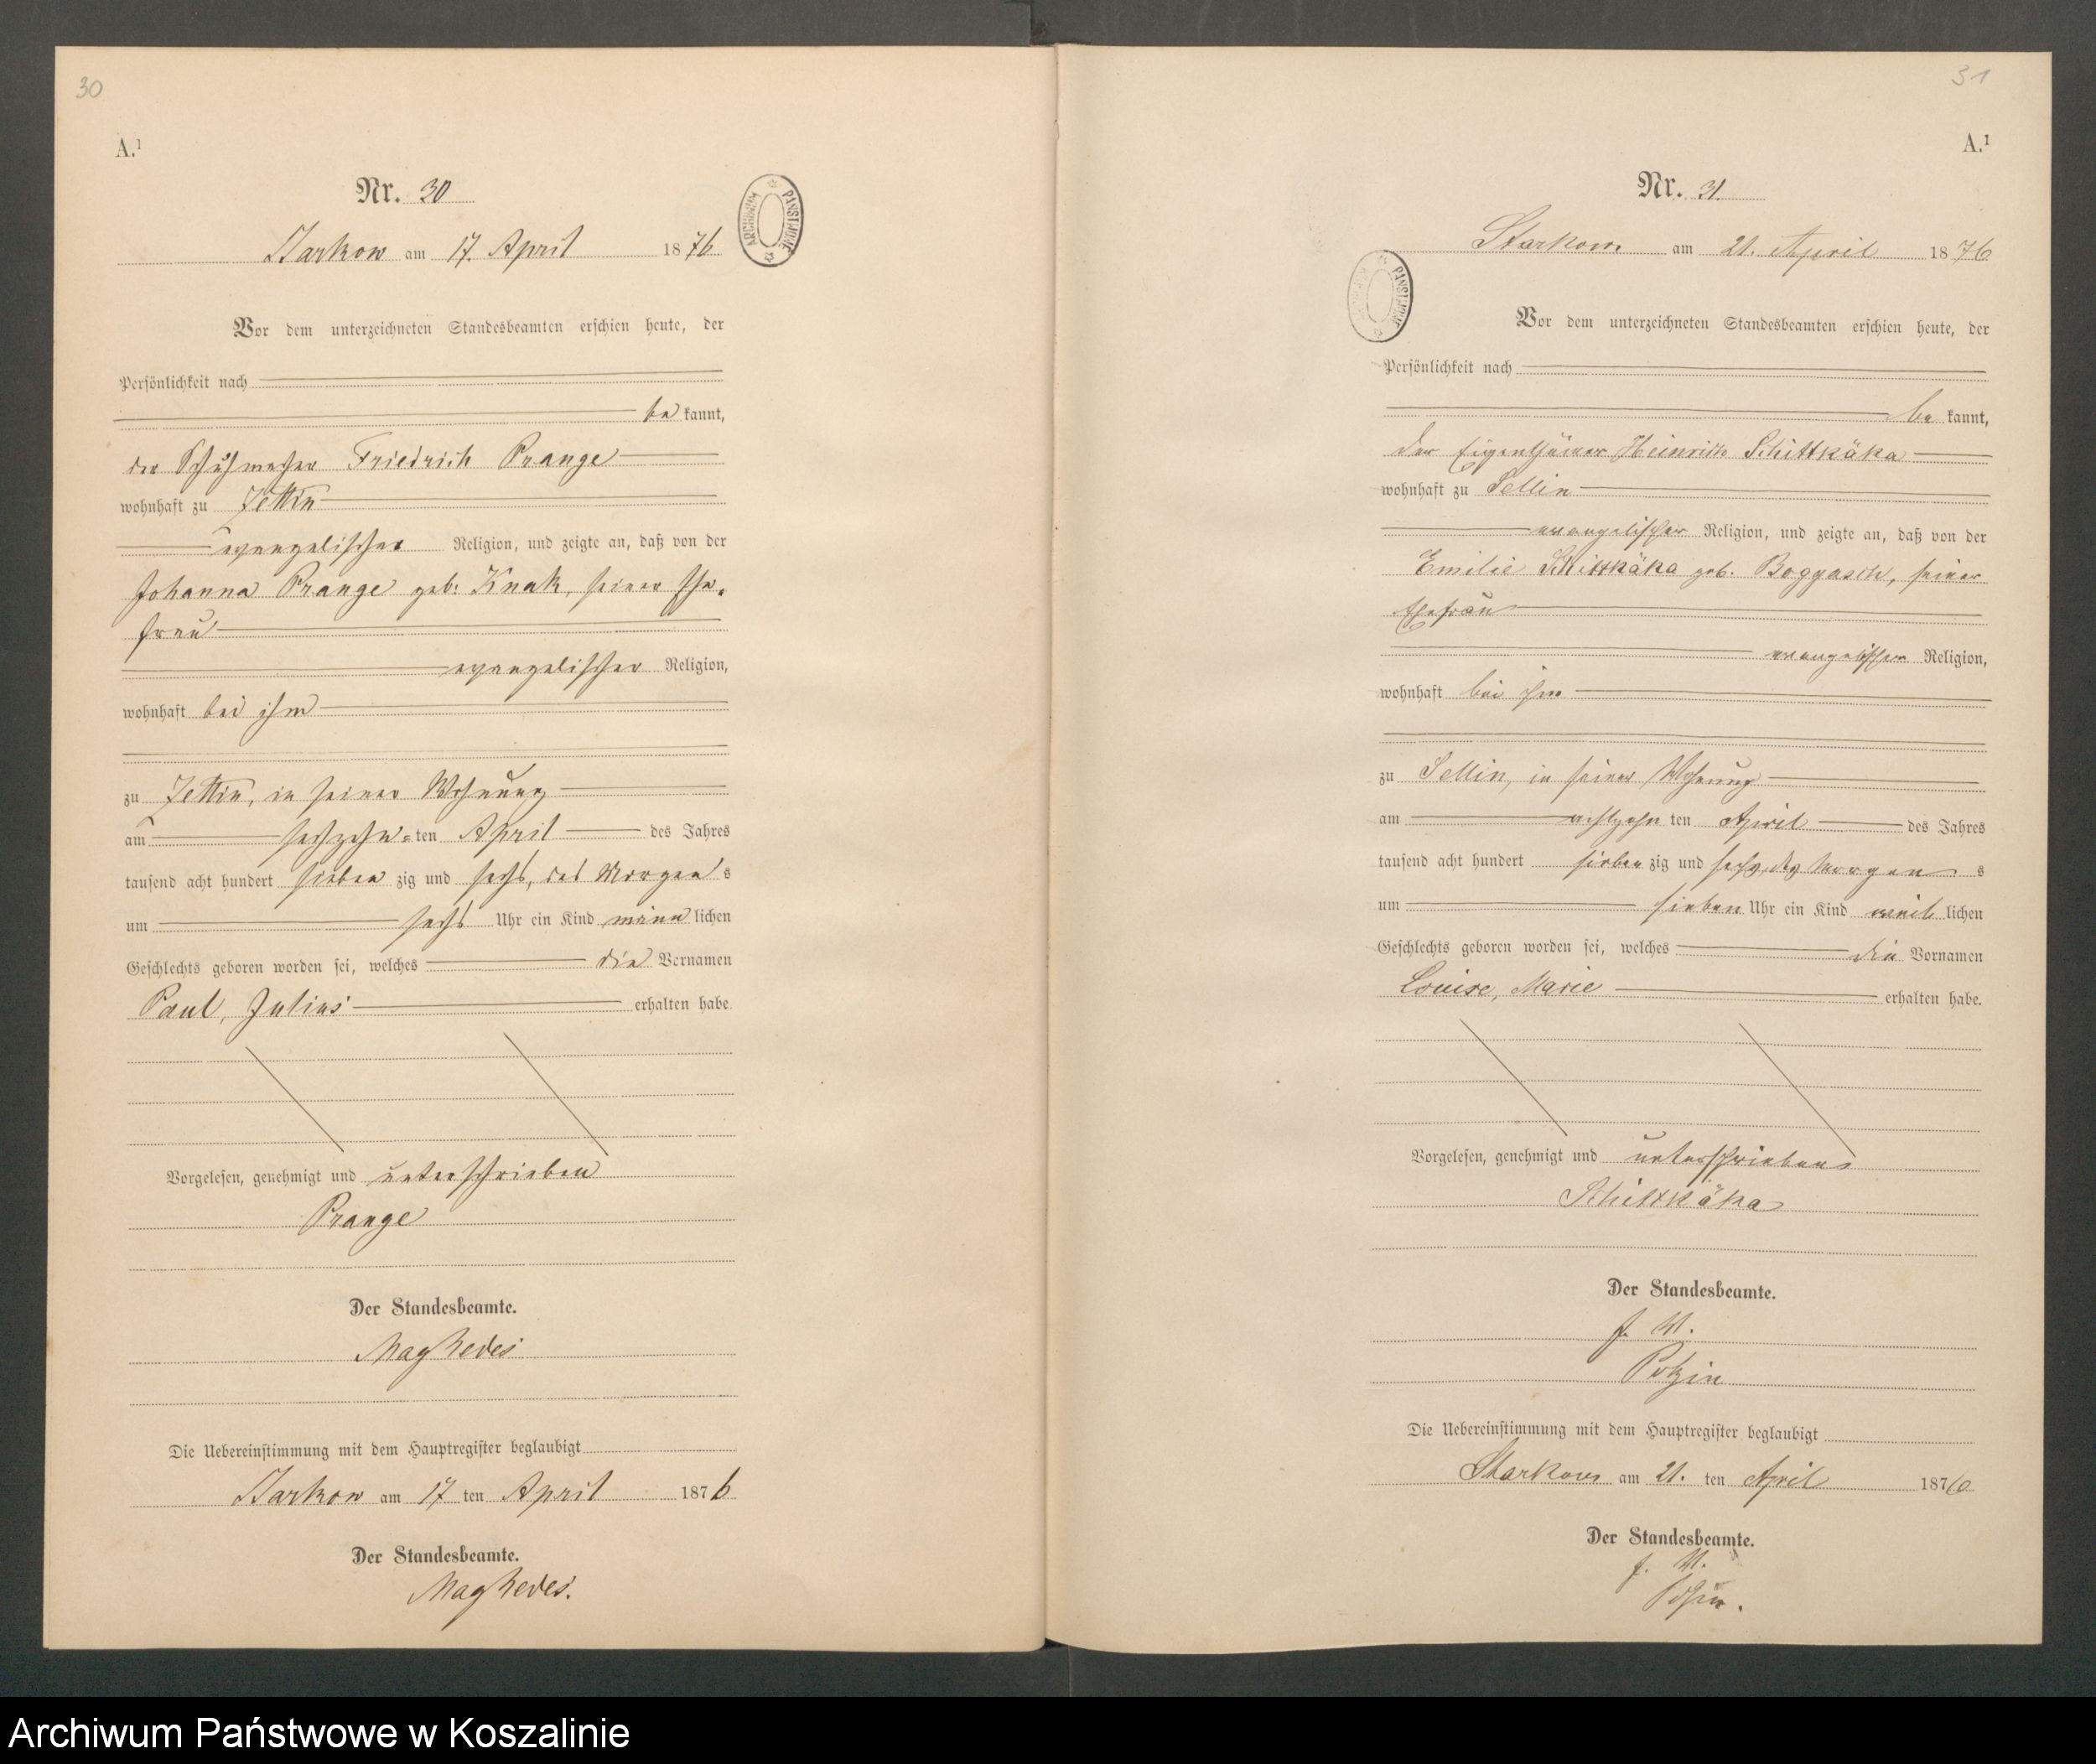 30
A.¹
Nr. 30
ARCHIWUM PAŃSTWOWE
Starkow am 17. April 1876
Vor dem unterzeichneten Standesbeamten erschien heute, der
Persönlichkeit nach
be kannt,
der Schuhmacher Friedrich Prange
wohnhaft zu Zettin
evangelischer Religion, und zeigte an, daß von der
Johanna Prange geb: Knak, seiner Ehe-
frau
evangelischer Religion,
wohnhaft bei ihm
zu Zettin, in seiner Wohnung
am sechzehn-ten April des Jahres
tausend acht hundert sieben zig und sechs, des Morgens
um sechs Uhr ein Kind männlichen
Geschlechts geboren worden sei, welches die Vornamen
Paul, Julius erhalten habe.
Vorgelesen, genehmigt und unterschrieben
Prange
Der Standesbeamte.
Die Uebereinstimmung mit dem Hauptregister beglaubigt
Starkow am 17 ten April 1876
Der Standesbeamte.
31
A.¹
Nr. 31.
Starkow am 21. April 1876
PAŃSTWOWE
Vor dem unterzeichneten Standesbeamten erschien heute, der
Persönlichkeit nach
be kannt,
der Eigenthümer Heinrich Schittkäka
wohnhaft zu Sellin
evangelischer Religion, und zeigte an, daß von der
Emilie Schittkäka geb. Boggasch, seiner
Ehefrau
evangelischer Religion,
wohnhaft bei ihm
zu Sellin, in seiner Wohnung
am achtzehn ten April des Jahres
tausend acht hundert sieben zig und sechs, des Morgens
um sieben Uhr ein Kind weiblichen
Geschlechts geboren worden sei, welches die Vornamen
Louise, Marie erhalten habe.
Vorgelesen, genehmigt und unterschrieben
Schittkäka
Der Standesbeamte.
Potzin
Die Uebereinstimmung mit dem Hauptregister beglaubigt
Starkow am 21. ten April 1876
Der Standesbeamte.
Potzin.
Archiwum Państwowe w Koszalinie